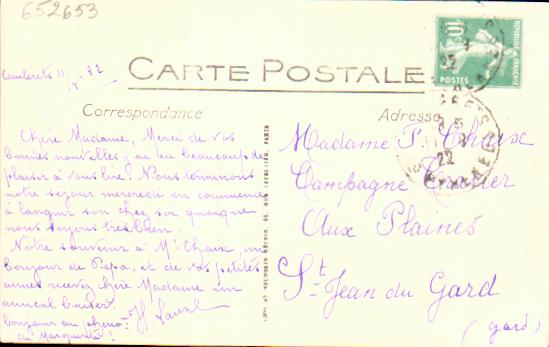 652653
Cauterets 11/8 22
CARTE POSTALE
Correspondance
Adresse
10c
POSTES
Chère Madame, Merci de vos
bonnes nouvelles, j'ai eu beaucoup de
plaisir à vous lire! Nous terminons
notre séjour mercredi on commence
à languir son chez soi quoique
nous soyons très bien.
Notre souvenir à Mr Chaix, un
bonjour de Papa, et de vos petites
amies recevez chère Madame un
amical baiser.
bonjour au
de Marguerite!
H.
Madame P.
Campagne
Aux Plaines
St Jean du Gard
(Gard)